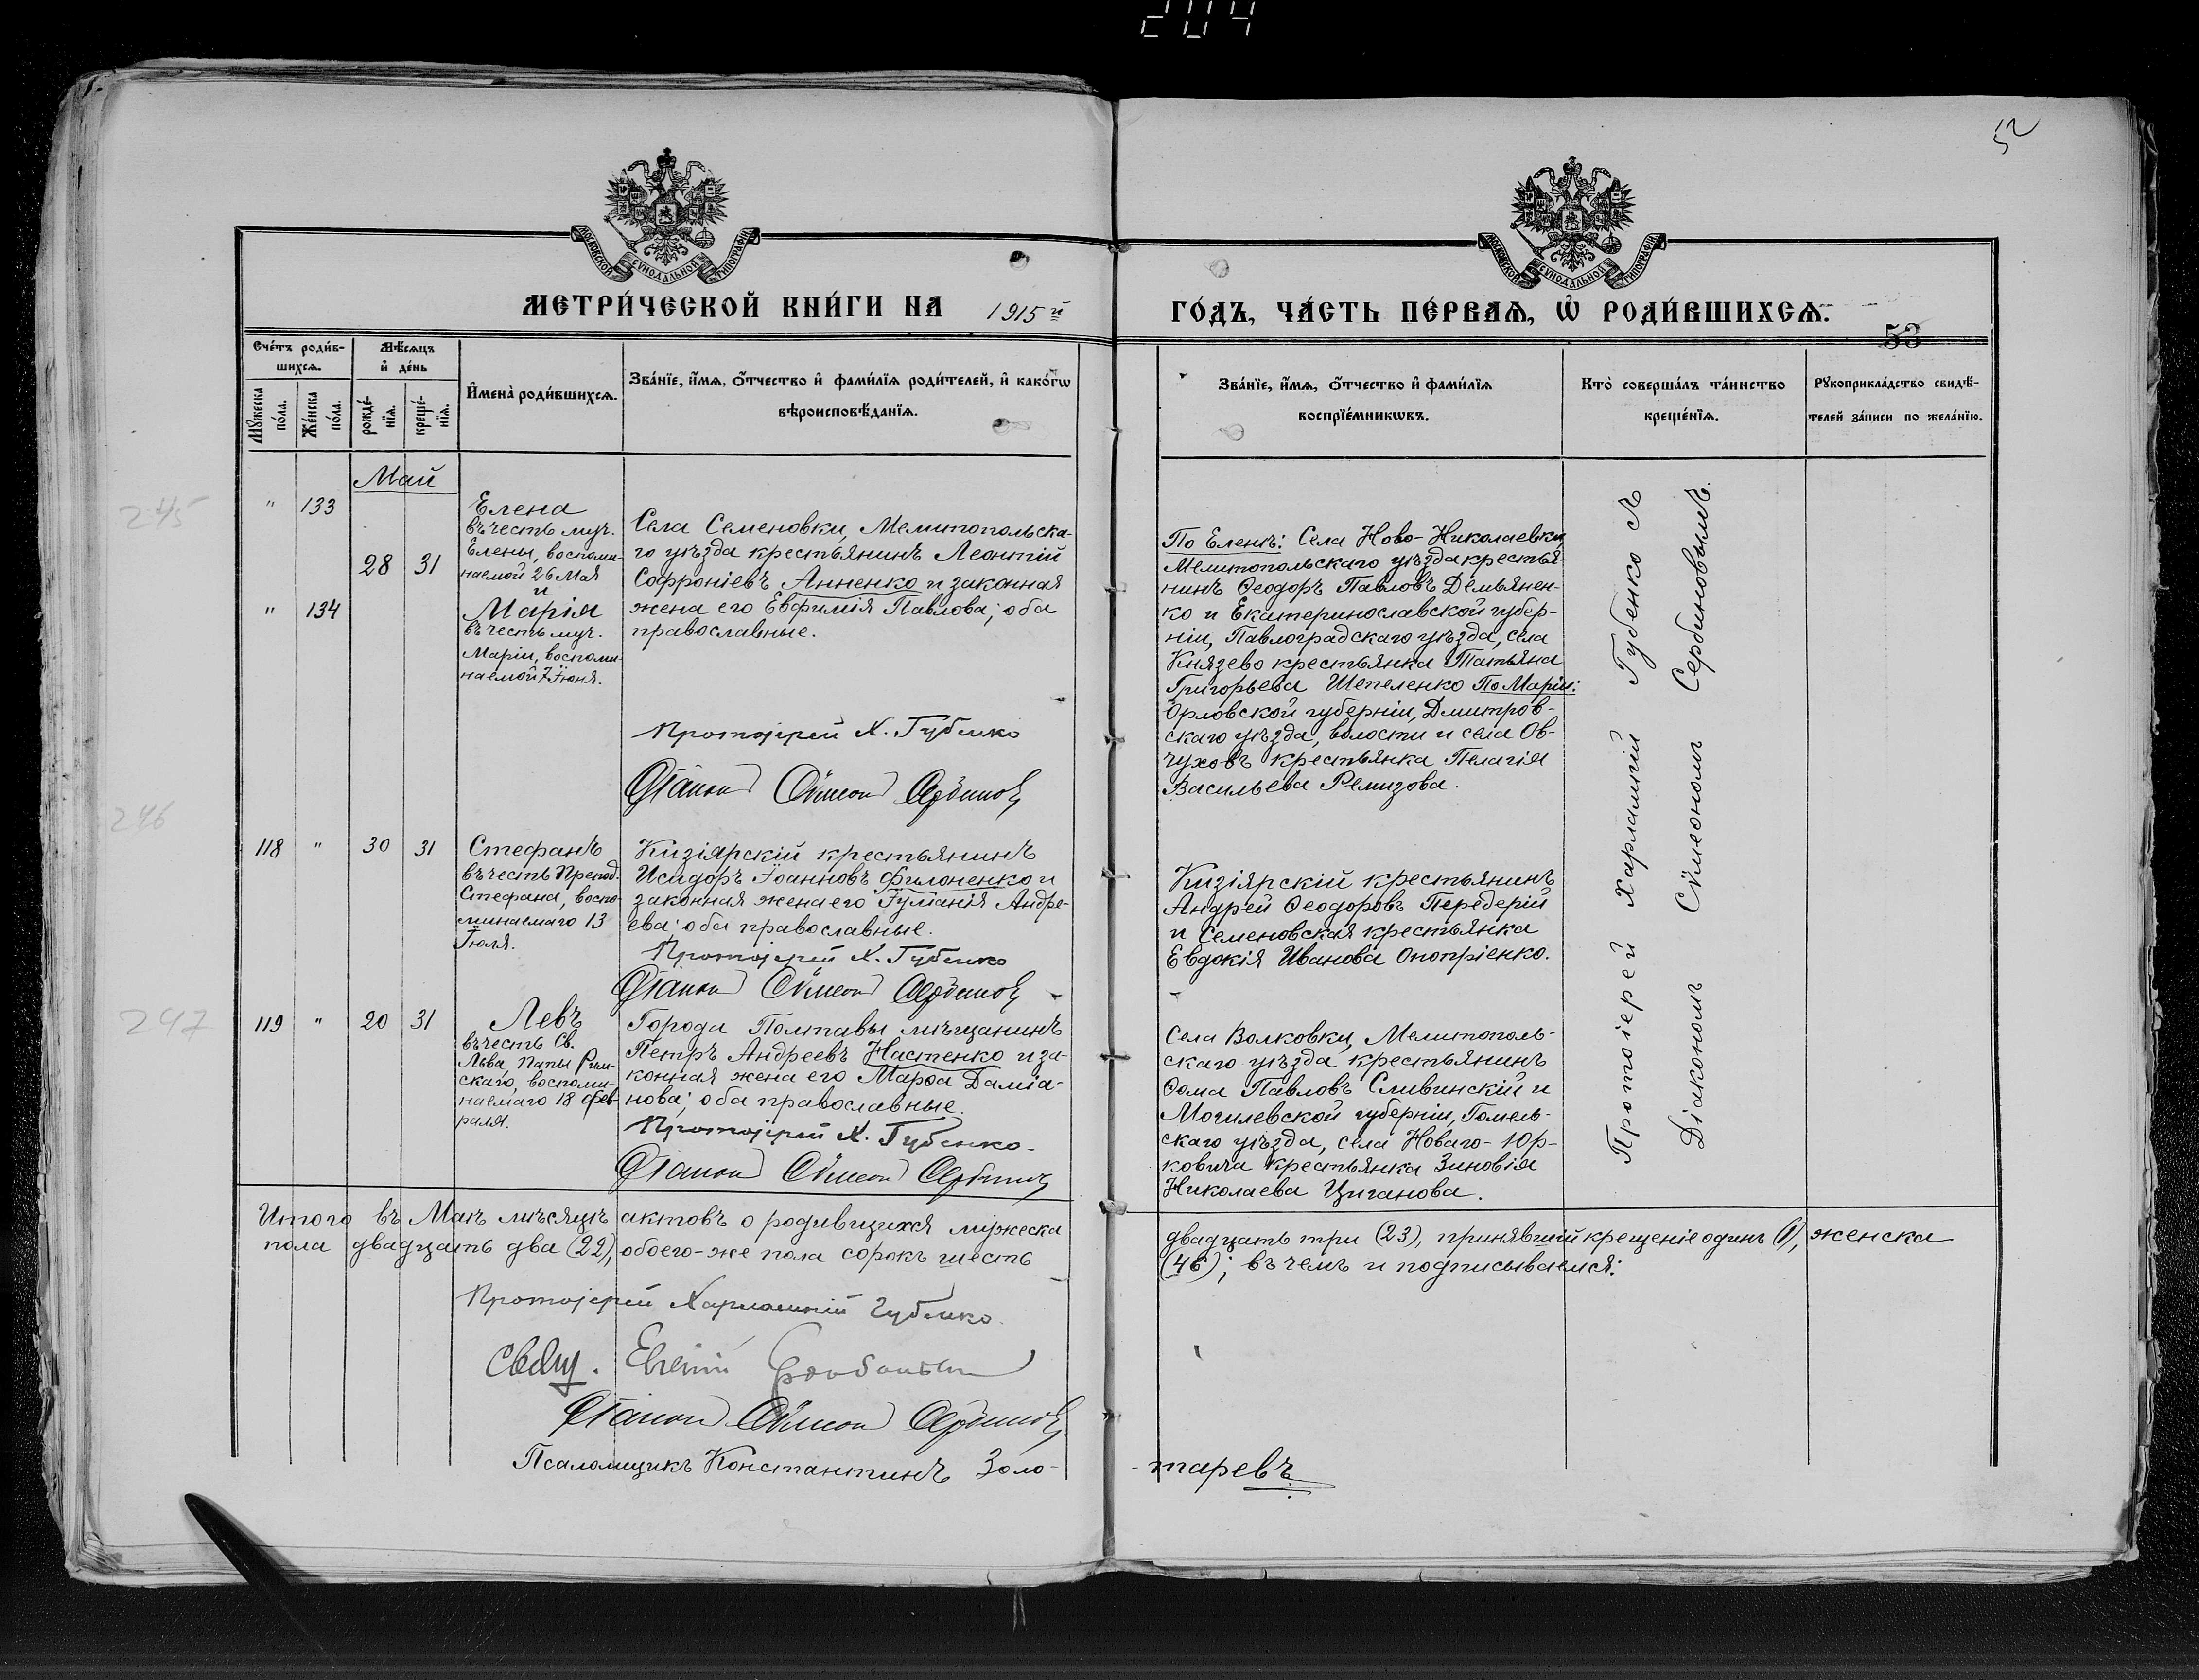 204
52
МОСКОВСКОЙ СѴНОДАЛЬНОЙ ТИПОГРАФІИ
МОСКОВСКОЙ СѴНОДАЛЬНОЙ ТИПОГРАФІИ
МЕТРИ́ЧЕСКОЙ КНИ́ГИ НА 1915й
ГО́ДЪ, ЧА́СТЬ ПЕ́РВАѦ, Ѡ҆ РОДИ́ВШИХСѦ.
53
Сче́тъ роди́в-
шихсѧ.
Мꙋ́жеска
по́ла.
Же́нска
по́ла.
Мѣ́сѧцъ
и҆ де́нь
рожде́-
нїѧ.
креще́-
нїѧ.
И҆мена̀ роди́вшихсѧ.
Зва́нїе, и҆́мѧ, ѻ҆́тчество и҆ фами́лїѧ роди́телей, и҆ како́гѡ
вѣроисповѣ́данїѧ.
Зва́нїе, и҆́мѧ, ѻ҆́тчество и҆ фами́лїѧ
воспрїе́мникѡвъ.
Кто̀ соверша́лъ та́инство
креще́нїѧ.
Рꙋкоприкла́дство свидѣ́-
телей за́писи по жела́нїю.
Май
245
" 133
28 31
" 134
Елена
въ честь муч.
Елены, воспоми-
наемой 26 Мая
и
Марія
въ честь муч.
Маріи, воспоми-
наемой 7 Іюня.
Села Семеновки, Мелитопольска-
го уѣзда крестьянинъ Леонтій
Софроніевъ Анненко и законная
жена его Евфимія Павлова; оба
православные.
Протоіерей Х. Губенко
Діаконъ Сѵмеонъ Сербиновъ
По Еленѣ: Села Ново-Николаевки,
Мелитопольскаго уѣзда крестья-
нинъ Ѳеодоръ Павловъ Демьянен-
ко и Екатеринославской губер-
ніи, Павлоградскаго уѣзда, села
Князево крестьянка Татьяна
Григорьева Шепеленко По Маріи:
Орловской губерніи, Дмитров-
скаго уѣзда, волости и села Ов-
чуховъ крестьянка Пелагія
Васильева Ремизова.
Протоіерей Харлампій Губенко съ
Діакономъ Сѵмеономъ Сербиновымъ.
246
118 " 30 31
Стефанъ
въ честь Препод.
Стефана, воспо-
минаемаго 13
Іюля.
Кизіярскій крестьянинъ
Исидоръ Іоанновъ Филоненко и
законная жена его Іуліанія Андре-
ева; оба православные.
Протоіерей Х. Губенко
Діаконъ Сѵмеонъ Сербиновъ
Кизіярскій крестьянинъ
Андрей Ѳеодоровъ Передерій
и Семеновская крестьянка
Евдокія Иванова Оноприенко.
247
119 " 20 31
Левъ
въ честь Св.
Льва, Папы Рим-
скаго, воспоми-
наемаго 18 Фев-
раля.
Города Полтавы мѣщанинъ
Петръ Андреевъ Настенко и за-
конная жена его Марѳа Даміа-
нова; оба православные.
Протоіерей Х. Губенко.
Діаконъ Сѵмеонъ Сербиновъ
Села Волковки, Мелитополь-
скаго уѣзда крестьянинъ
Ѳома Павловъ Сливинскій и
Могилевской губерніи, Гомель-
скаго уѣзда, села Новаго-Юр-
ковича крестьянка Зиновія
Николаева Циганова.
Итого въ Маѣ мѣсяцѣ актовъ о родившихся мужеска
двадцать три (23), принявшій крещеніе одинъ (1), женска
пола двадцать два (22), обоего-же пола сорокъ шесть
(46); въ чемъ и подписываемся:
Протоіерей Харлампій Губенко.
Свящ. Евгеній
Діаконъ Сѵмеонъ Сербиновъ
Псаломщикъ Константинъ Золо-
таревъ